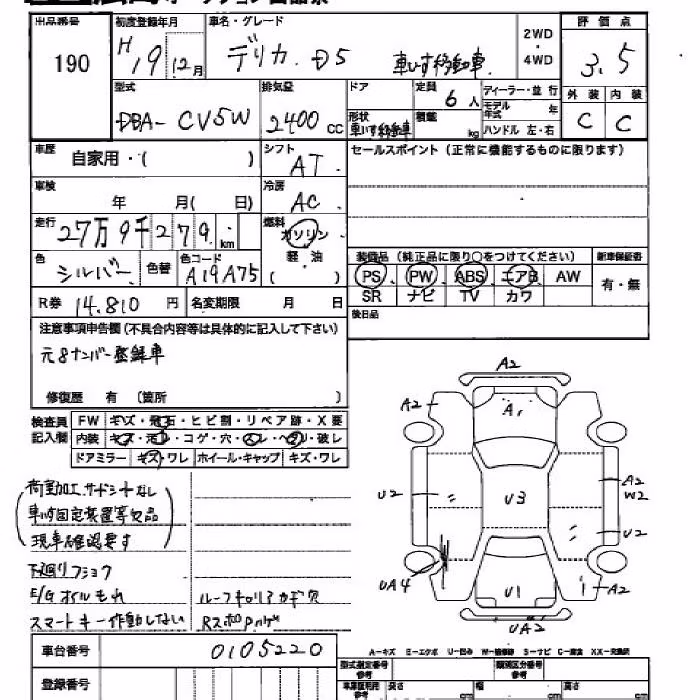 出品番号 初度登録年月 車名・グレード 2WD・4WD 評価点
190 H19 12月 デリカ D5 車いす移動車 3.5
型式 排気量 ドア 定員 6人 ディーラー・並行 外装 内装
DBA- CV5W 2400 CC 形状 車いす移動車 積載 kg モデル年式 年 ハンドル 左・右 C C
車歴 自家用・( ) シフト AT セールスポイント（正常に機能するものに限ります）
車検 年 月( 日) 冷房 AC
走行 27万9千279 km 燃料 ガソリン
色 シルバー 色替 色コード A19A75 軽油 ( ) 装備品（純正品に限り○をつけてください） 新車保証書
PS PW ABS エアB AW 有・無
R券 14.810 円 名変期限 月 日 SR ナビ TV カワ
後日品
注意事項申告欄（不具合内容等は具体的に記入して下さい）
元8ナンバー登録車
修復歴 有 〔箇所 〕
検査員記入欄 FW キズ・飛石・ヒビ割・リペア跡・X要
内装 キズ・汚れ・コゲ・穴・スレ・ヘタリ・破レ
ドアミラー キズ・ワレ ホイール・キャップ キズ・ワレ
A2
A2 A1
U2 U3 A2
W2
U2
UA4 U1 A2
UA2
荷室加工、サードシートなし
車いす固定装置等欠品
現車確認要す
下廻りフショク
E/Gオイルもれ ルーフキャリアカギ穴
スマートキー作動しない
車台番号 0105220
A－キズ E－エクボ U－凹み W－補修跡 S－サビ C－腐食 XX－交換済
登録番号 型式指定番号 参考 類別区分番号 参考
長さ cm 幅 cm 高さ cm